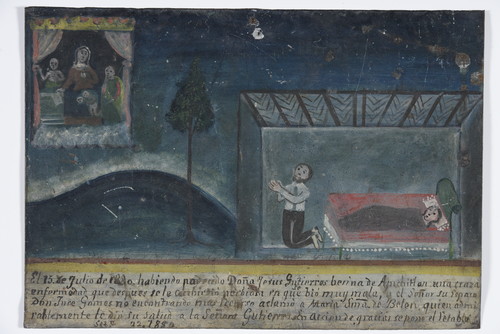 El 13 de Julio de 1880, habiendo padecido Doña Jesus Gutierres becina de Apichitlan una grabe
enfermedad que despues se le clasificó perdicion en que bio muy mala, y el Señor su Esposo
Don Jose Gomes no encontrando mas recurso aclamó a Maria Sma. de Belen, quien admi
rablemente le dio su salud a la Señora Gutierres. En accion de gracias se pone el retablo
22, 1880